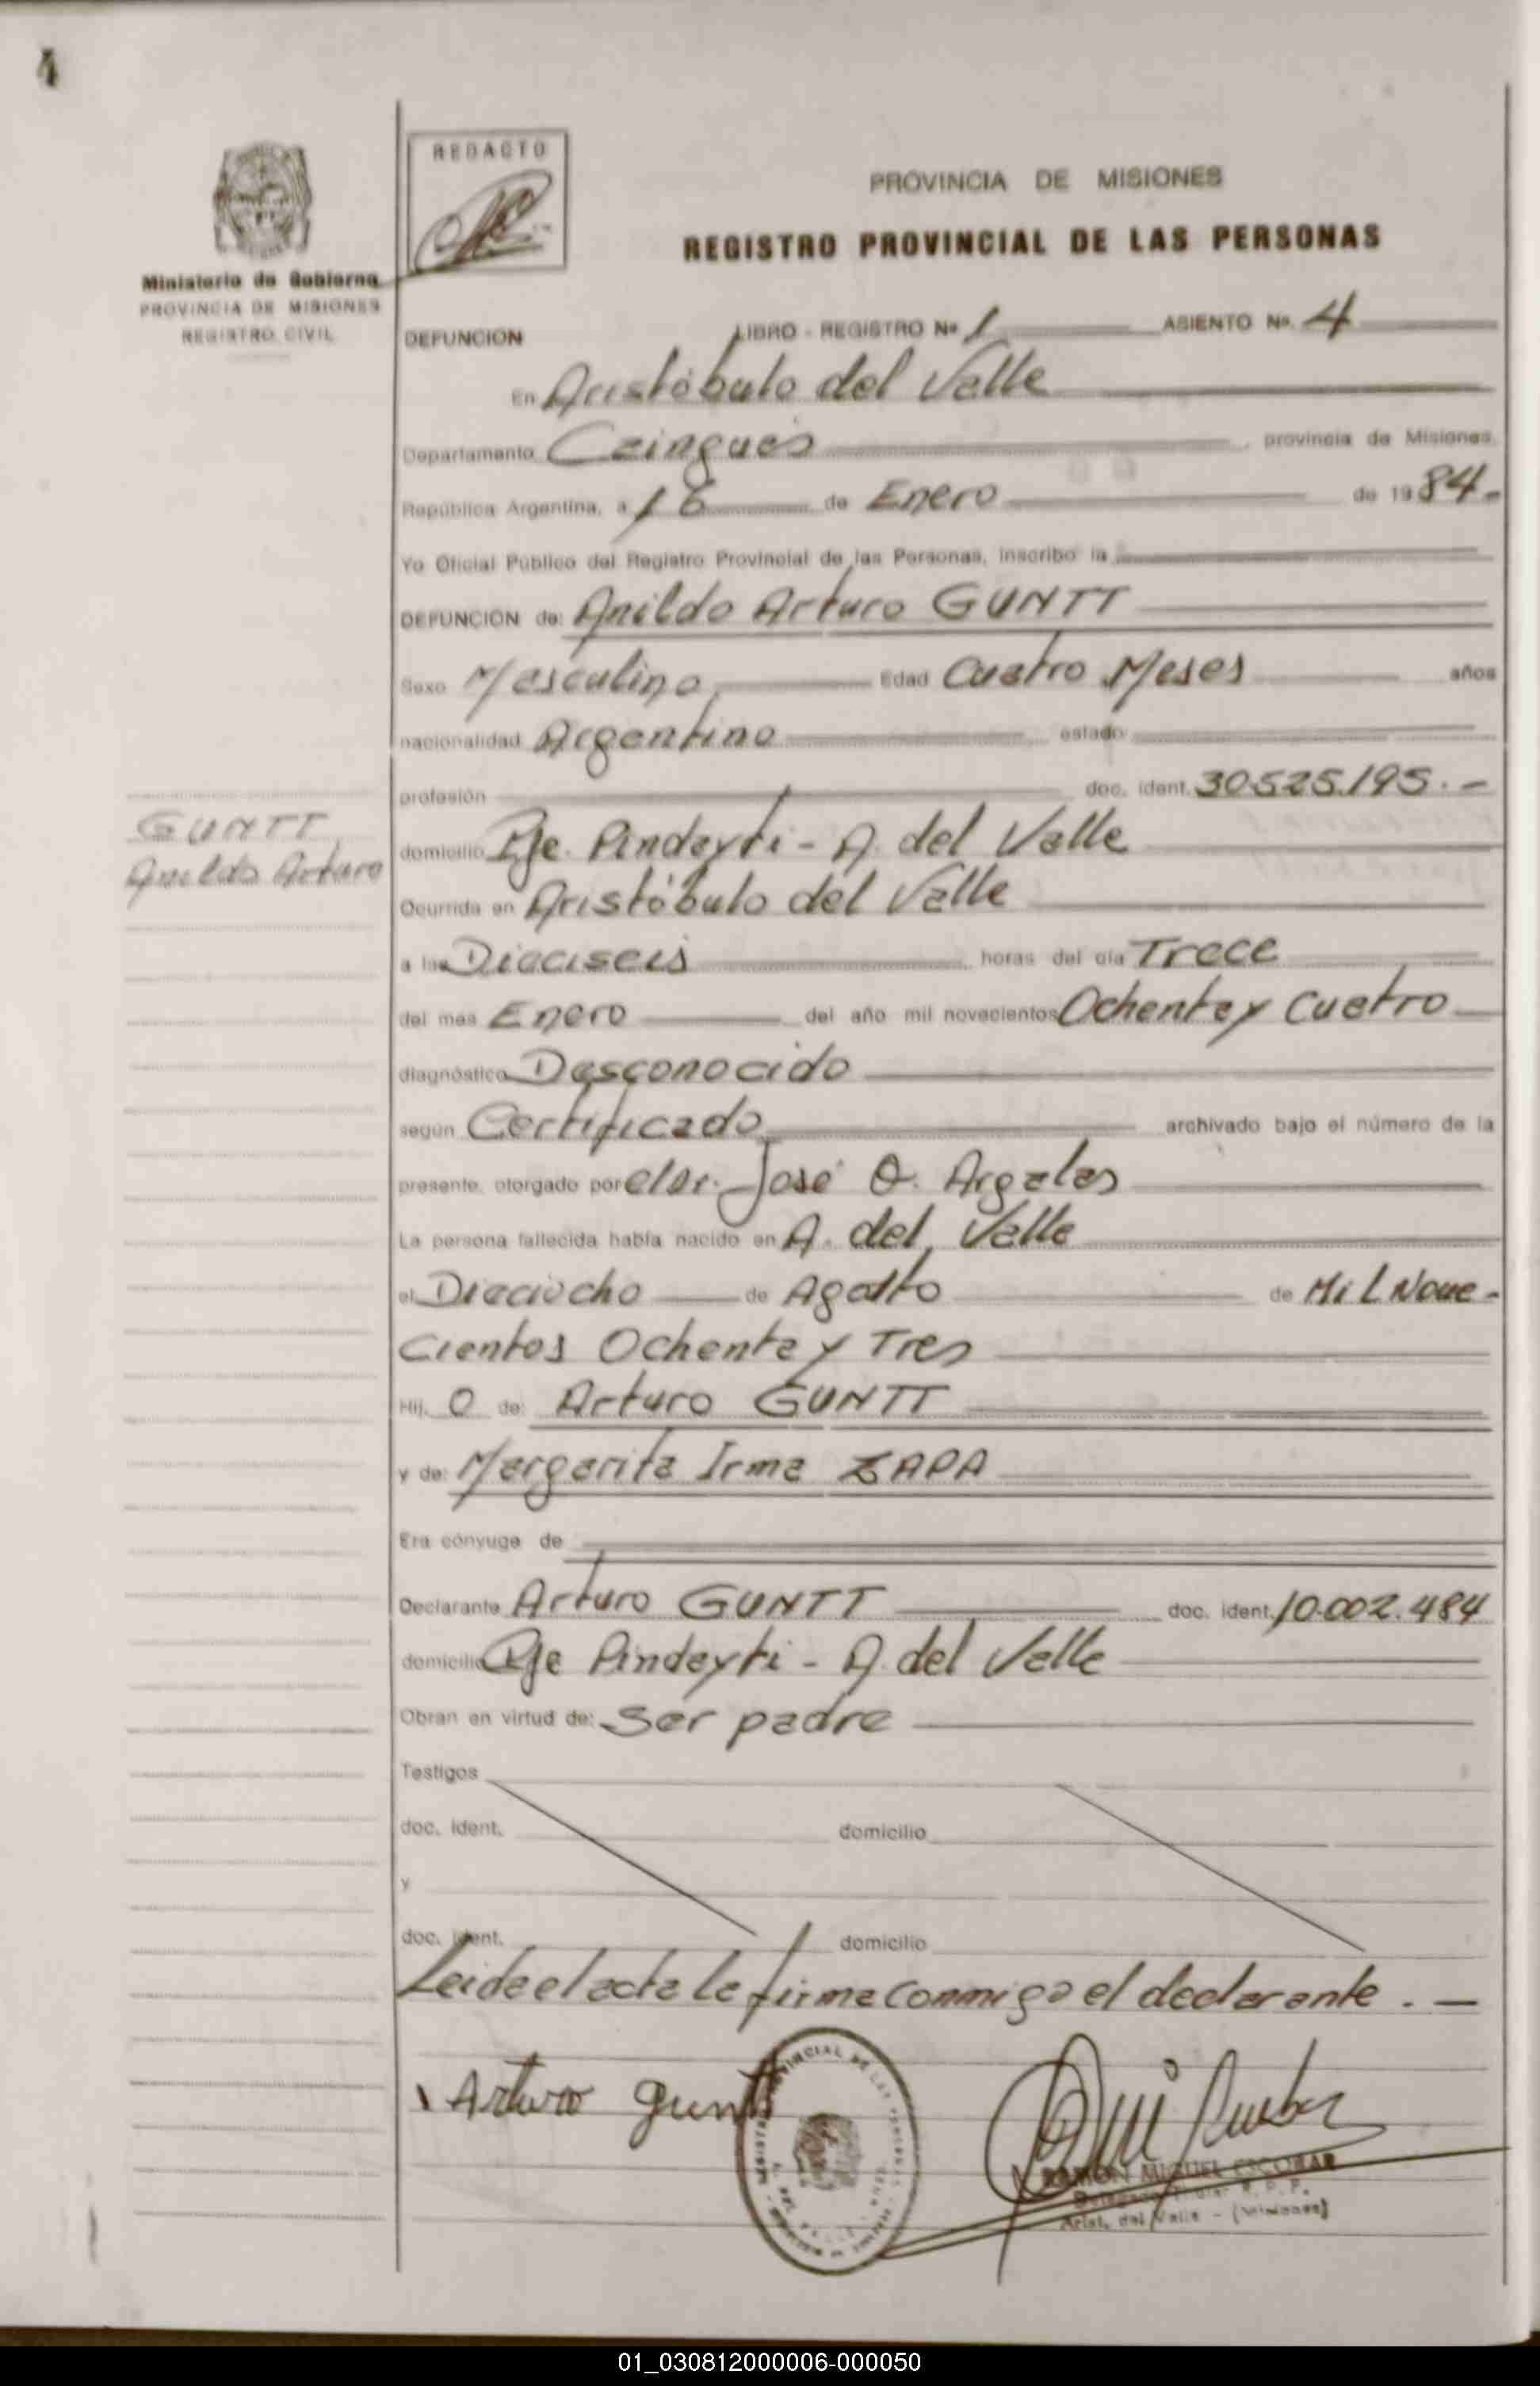 4
REDACTO
Ministerio de Gobierno
PROVINCIA DE MISIONES
REGISTRO CIVIL
PROVINCIA DE MISIONES
REGISTRO PROVINCIAL DE LAS PERSONAS
DEFUNCION LIBRO - REGISTRO No 1 ASIENTO No. 4
En Aristóbulo del Valle
Departamento Cainguás, provincia de Misiones,
República Argentina, a 16 de Enero de 1984.-
Yo Oficial Público del Registro Provincial de las Personas, inscribo la
DEFUNCION de: Anildo Arturo GUNTT
Sexo Masculino, Edad Cuatro Meses años
nacionalidad Argentina estado
profesión doc. ident. 30.525.195.-
GUNTT
Anildo Arturo
domicilio Pje. Pindayti - A. del Valle
Ocurrida en Aristóbulo del Valle
a las Dieciseis horas del día Trece
del mes Enero del año mil novecientos Ochenta y Cuatro
diagnóstico Desconocido
según Certificado archivado bajo el número de la
presente, otorgado por el Dr. José O. Argalas
La persona fallecida había nacido en A. del Valle
el Dieciocho de Agosto de Mil Nove-
cientos Ochenta y Tres
Hij. O de: Arturo GUNTT
y de: Margarita Irma ZAPA
Era cónyuge de
Declarante Arturo GUNTT doc. ident. 10.002.484
domicilio Pje Pindayti - A. del Valle
Obran en virtud de: Ser padre
Testigos
doc. ident. domicilio
y
doc. ident. domicilio
Leida el acta la firma conmigo el declarante. -
Arturo Guntt
RAMON MIGUEL ESCOBAR
Delegado Titular R. P. P.
Arist. del Valle - (Misiones)
01_030812000006-000050